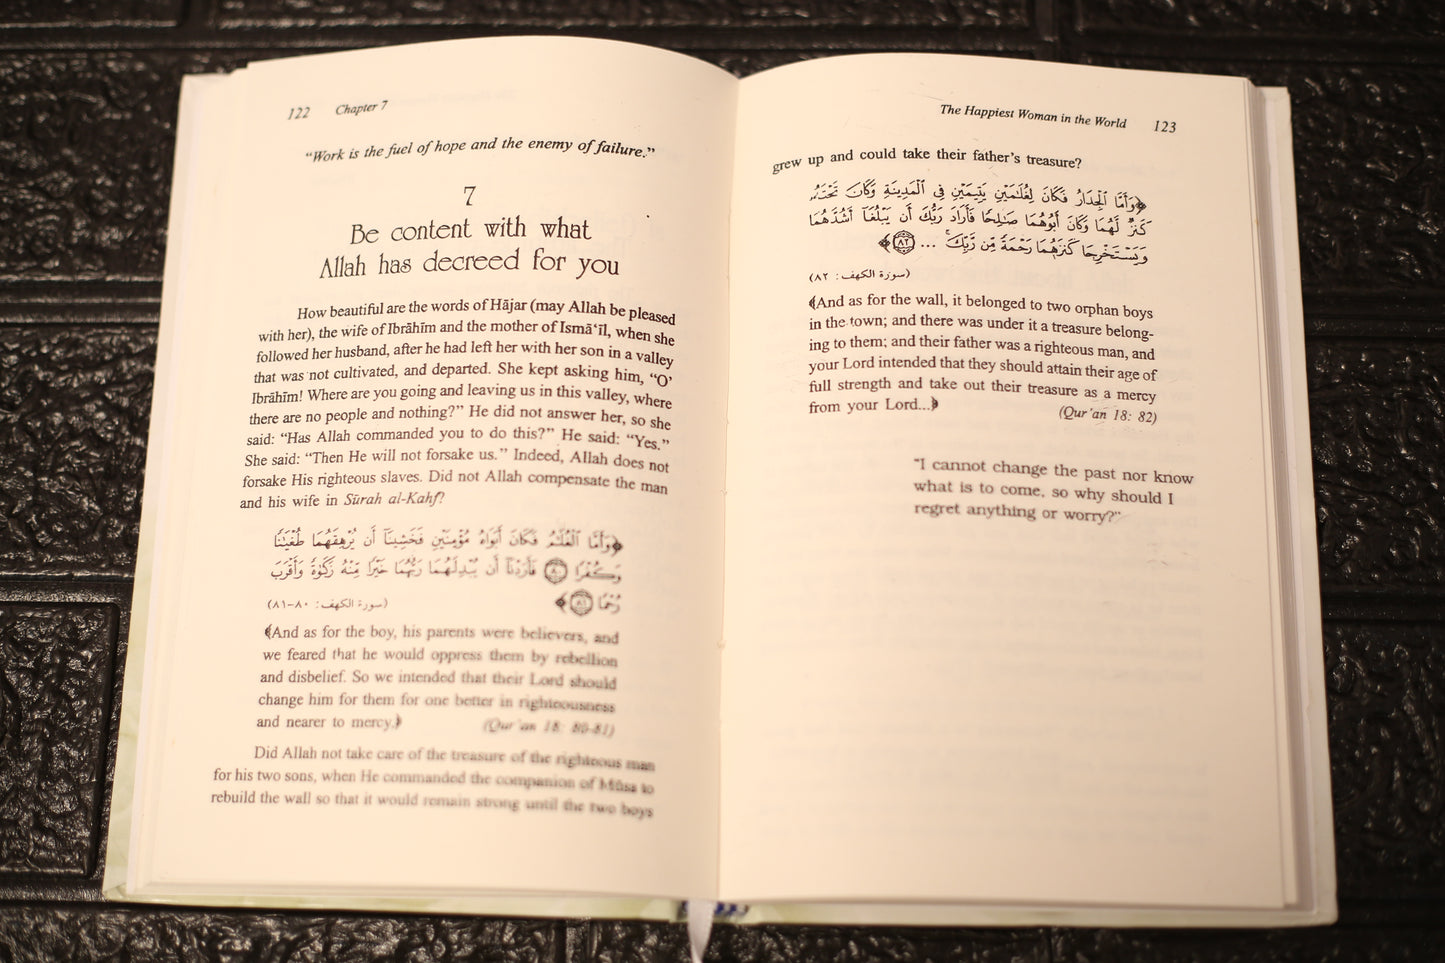 122 Chapter 7
“Work is the fuel of hope and the enemy of failure.”
7
Be content with what
Allah has decreed for you
How beautiful are the words of Hājar (may Allah be pleased
with her), the wife of Ibrāhīm and the mother of Ismā‘īl, when she
followed her husband, after he had left her with her son in a valley
that was not cultivated, and departed. She kept asking him, “O’
Ibrāhīm! Where are you going and leaving us in this valley, where
there are no people and nothing?” He did not answer her, so she
said: “Has Allah commanded you to do this?” He said: “Yes.”
She said: “Then He will not forsake us.” Indeed, Allah does not
forsake His righteous slaves. Did not Allah compensate the man
and his wife in Sūrah al-Kahf?
﴿وَأَمَّا ٱلْغُلَٰمُ فَكَانَ أَبَوَاهُ مُؤْمِنَيْنِ فَخَشِينَآ أَن يُرْهِقَهُمَا طُغْيَٰنًا
وَكُفْرًا ۝٨٠ فَأَرَدْنَآ أَن يُبْدِلَهُمَا رَبُّهُمَا خَيْرًا مِّنْهُ زَكَوٰةً وَأَقْرَبَ
رُحْمًا ۝٨١﴾ (سورة الكهف: ٨٠-٨١)
﴾And as for the boy, his parents were believers, and
we feared that he would oppress them by rebellion
and disbelief. So we intended that their Lord should
change him for them for one better in righteousness
and nearer to mercy.﴿ (Qur’an 18: 80-81)
Did Allah not take care of the treasure of the righteous man
for his two sons, when He commanded the companion of Mūsa to
rebuild the wall so that it would remain strong until the two boys
The Happiest Woman in the World 123
grew up and could take their father’s treasure?
﴿وَأَمَّا ٱلْجِدَارُ فَكَانَ لِغُلَٰمَيْنِ يَتِيمَيْنِ فِى ٱلْمَدِينَةِ وَكَانَ تَحْتَهُۥ
كَنزٌ لَّهُمَا وَكَانَ أَبُوهُمَا صَٰلِحًا فَأَرَادَ رَبُّكَ أَن يَبْلُغَآ أَشُدَّهُمَا
وَيَسْتَخْرِجَا كَنزَهُمَا رَحْمَةً مِّن رَّبِّكَ ۚ ... ۝٨٢﴾
(سورة الكهف: ٨٢)
﴾And as for the wall, it belonged to two orphan boys
in the town; and there was under it a treasure belong-
ing to them; and their father was a righteous man, and
your Lord intended that they should attain their age of
full strength and take out their treasure as a mercy
from your Lord...﴿ (Qur’an 18: 82)
“I cannot change the past nor know
what is to come, so why should I
regret anything or worry?”